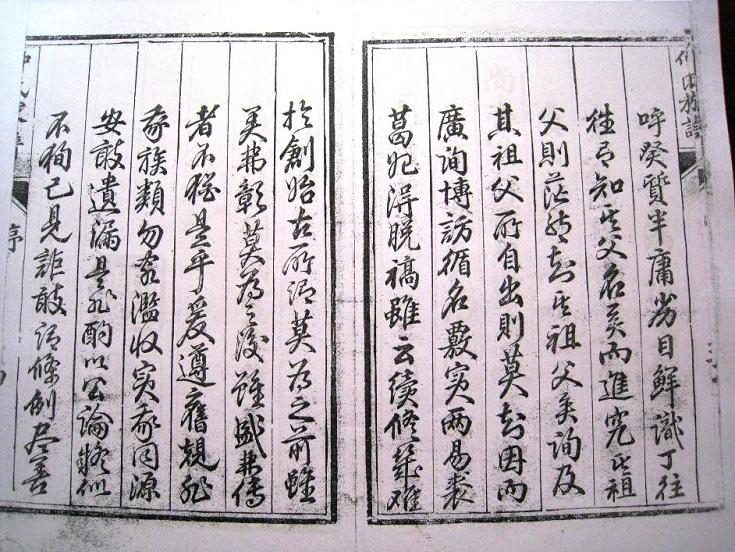 呼癸質半庸劣目鮮識丁往
往有知其父名矣而進究其祖
父則茫然知其祖父矣詢及
其祖父所自出則莫知因而
廣詢博訪循名覈實兩易裘
葛始得脫稿雖云續修幾難
於創始古所謂莫為之前雖
美弗彰莫為之後雖盛弗傳
者不猶是乎爰遵舊規非
我族類勿容濫收實我同源
安敢遺漏是非酌以公論疑似
不徇己見詎敢謂條例盡善
序